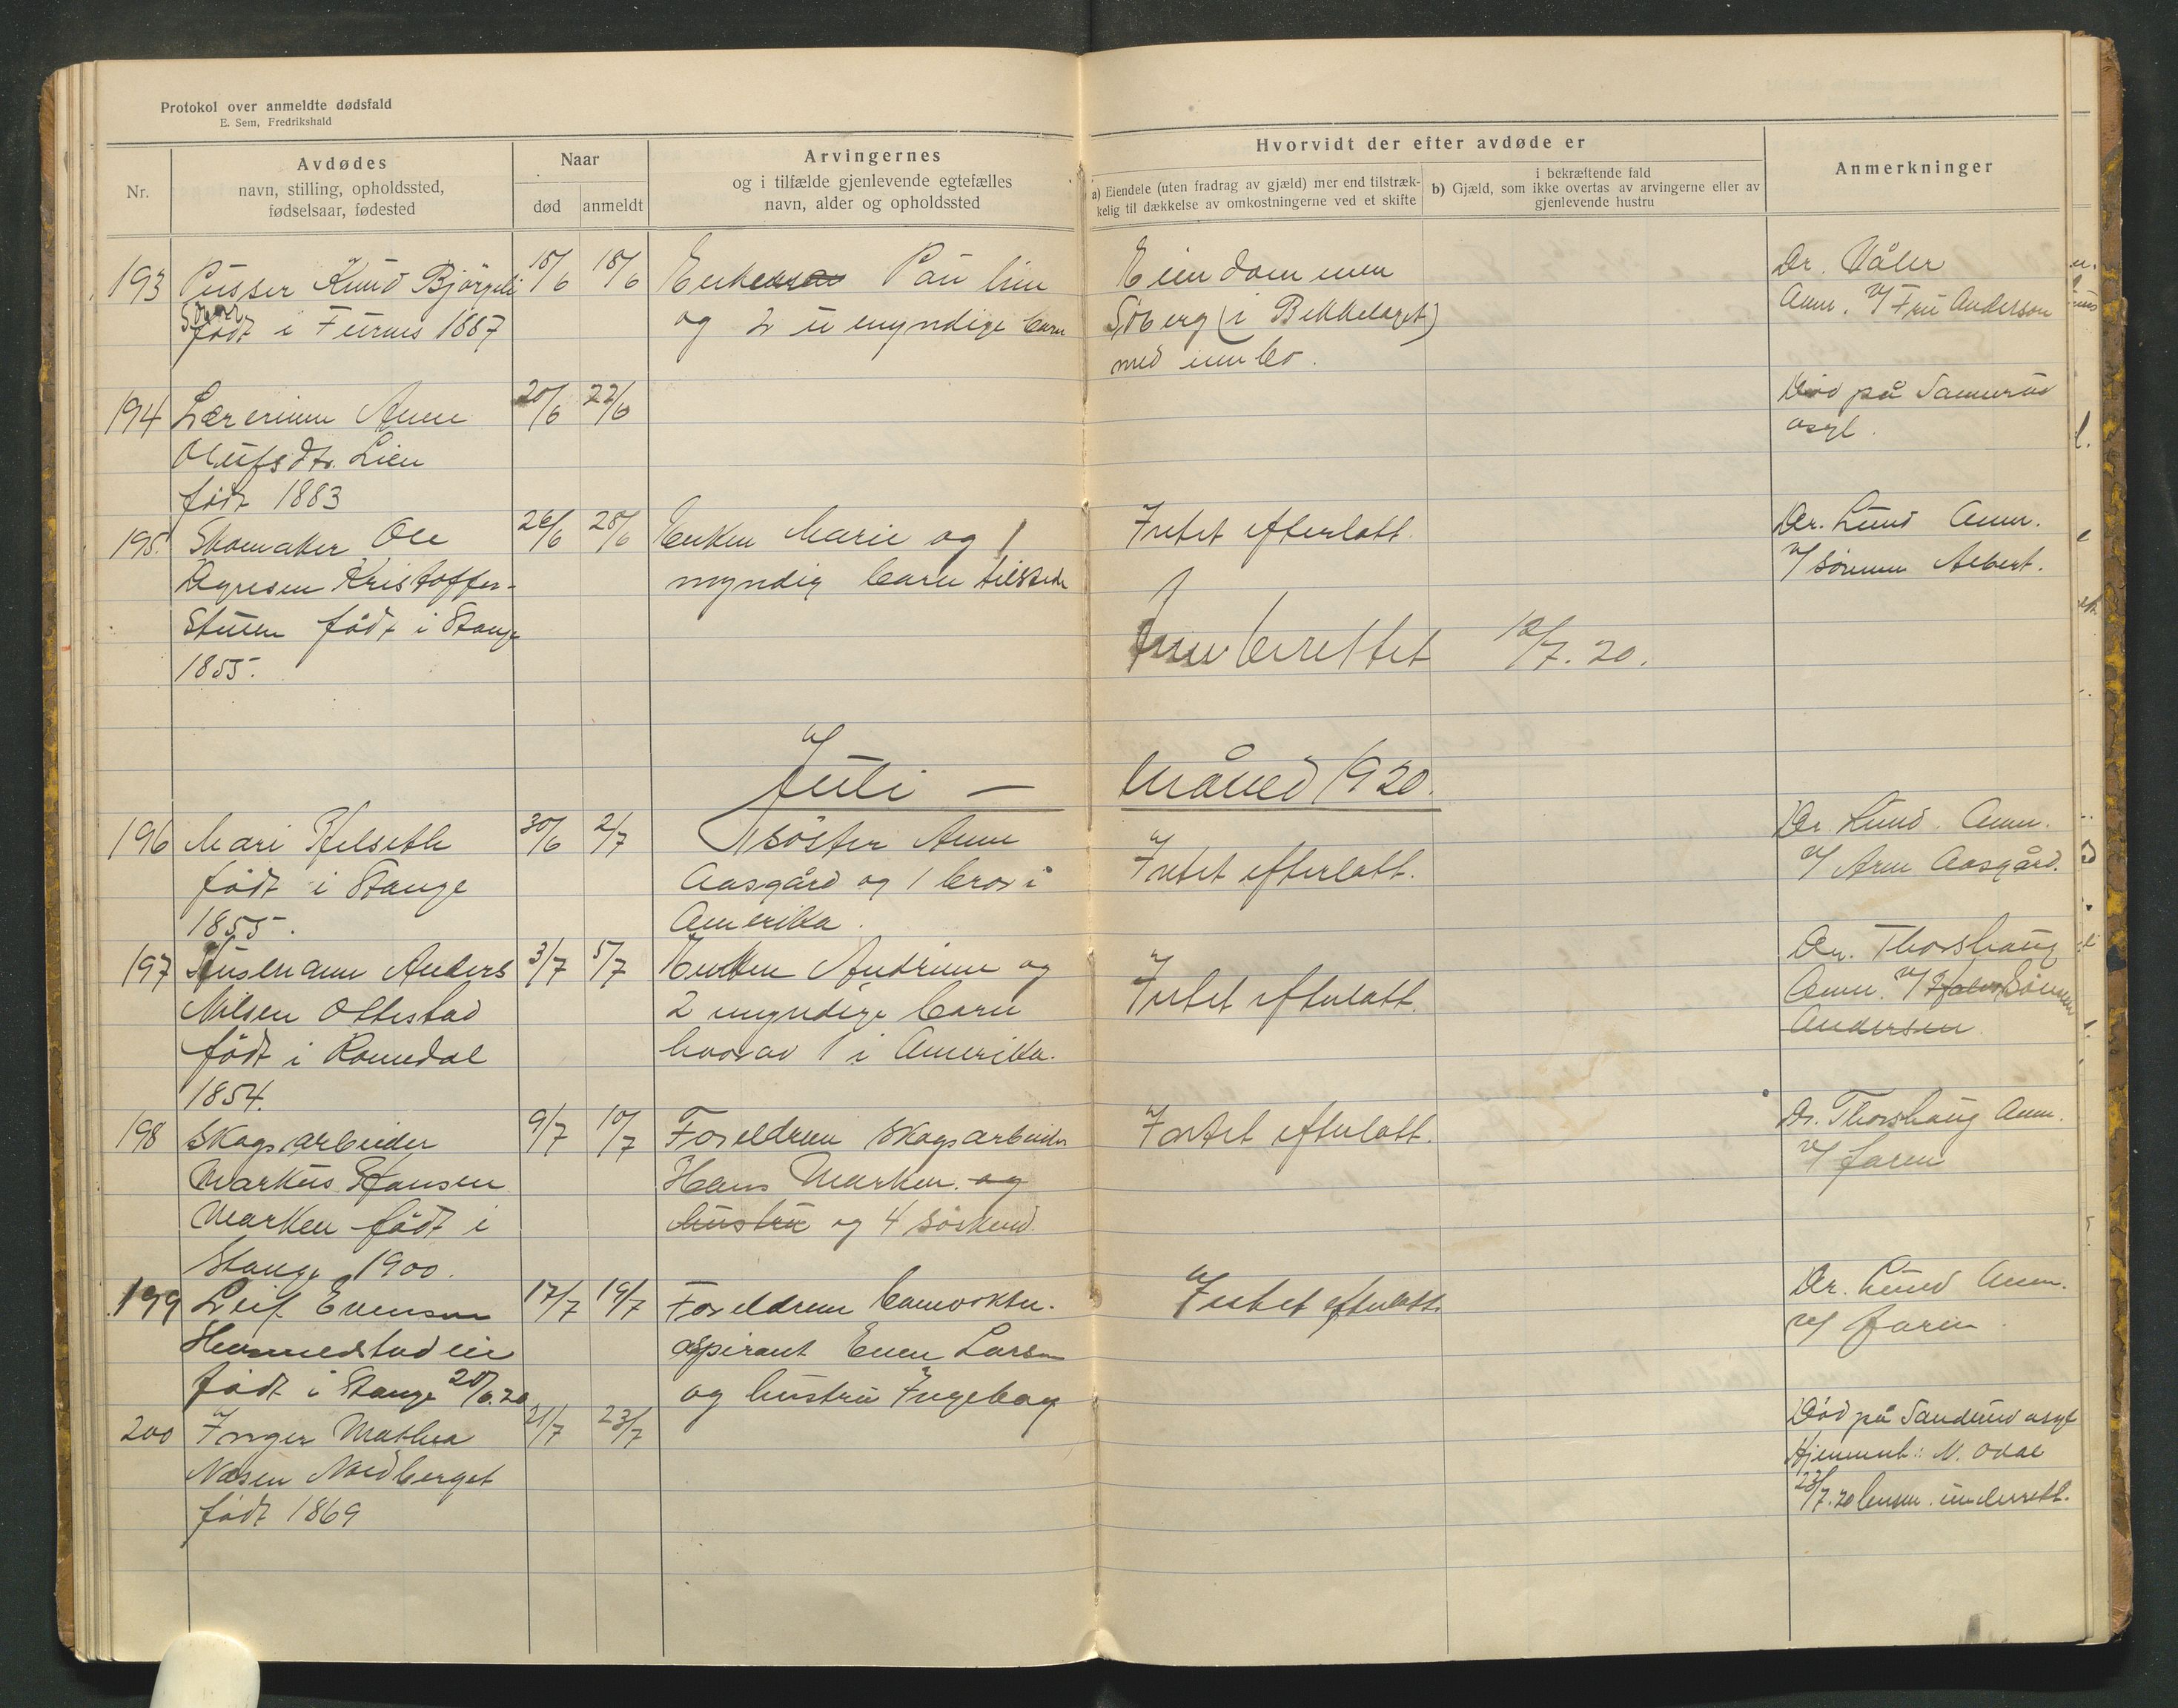 Protokol over anmeldte dødsfald
E. Sem, Fredrikshald
Nr.
Avdødes
navn, stilling, opholdssted,
fødselsaar, fødested
Naar
død
anmeldt
Arvingernes
og i tilfælde gjenlevende egtefælles
navn, alder og opholdssted
Hvorvidt der efter avdøde er
a) Eiendele (uten fradrag av gjæld) mer end tilstræk-
kelig til dækkelse av omkostningerne ved et skifte
i bekræftende fald
b) Gjæld, som ikke overtas av arvingerne eller av
gjenlevende hustru
Anmerkninger
193 Pusser Knud Bjørgeli 18/6 18/6
født i Furnes 1887
Pauline
og 2 umyndige barn
Eiendommen
Soberg (i Bekkelaget)
med innbo.
Dr. Våler
Anm. v/ Fru Anderson
194 Lærerinne Anne 20/6 22/6
Olufsdtr. Lien
født 1883
Død på Sannerud
asyl.
195. Skomaker Ole 26/6 28/6
Kristoffer-
Stuen født i Stange
1855.
Enken Marie og 1
myndig barn tilstede
Intet efterlatt.
Dr. Lund Anm.
v/ sønnen Albert.
Innberettet 12/7.20.
Juli — måned 1920.
196 Mari Helseth 30/6 2/7
født i Stange
1855.
1 søster Anne
Aasgård og 1 bror i
Amerika.
Intet efterlatt.
Dr. Lund. Anm.
v/ Arne Aasgård.
197 Husmann Anders 3/7 5/7
Nilsen Ottestad
født i Romedal
1854.
Enken Andrine og
2 myndige barn
hvorav 1 i Amerika.
Intet efterlatt.
Dr. Thorshaug
Anm. v/ sønnen
Andersen
198 Skogsarbeider 9/7 10/7
Markus Hansen
Marken født i
Stange 1900.
Foreldrene skogsarbeider
Hans Marken. og
hustru og 4 søskend.
Intet efterlatt.
Dr. Thorshaug Anm.
v/ faren
199 Leif Evensen 17/7 19/7
Hommelstadeie
født i Stange 28/6.20
Foreldrene banevokter-
aspirant Even Larsen
og hustru Ingeborg
Intet efterlatt.
Dr. Lund Anm.
v/ faren.
200 Inger Mathea 21/7 23/7
Næsen Nordberget
født 1869
Død på Sanderud asyl
Hjemmeh: N. Odal
23/7.20 lensm. underrett.